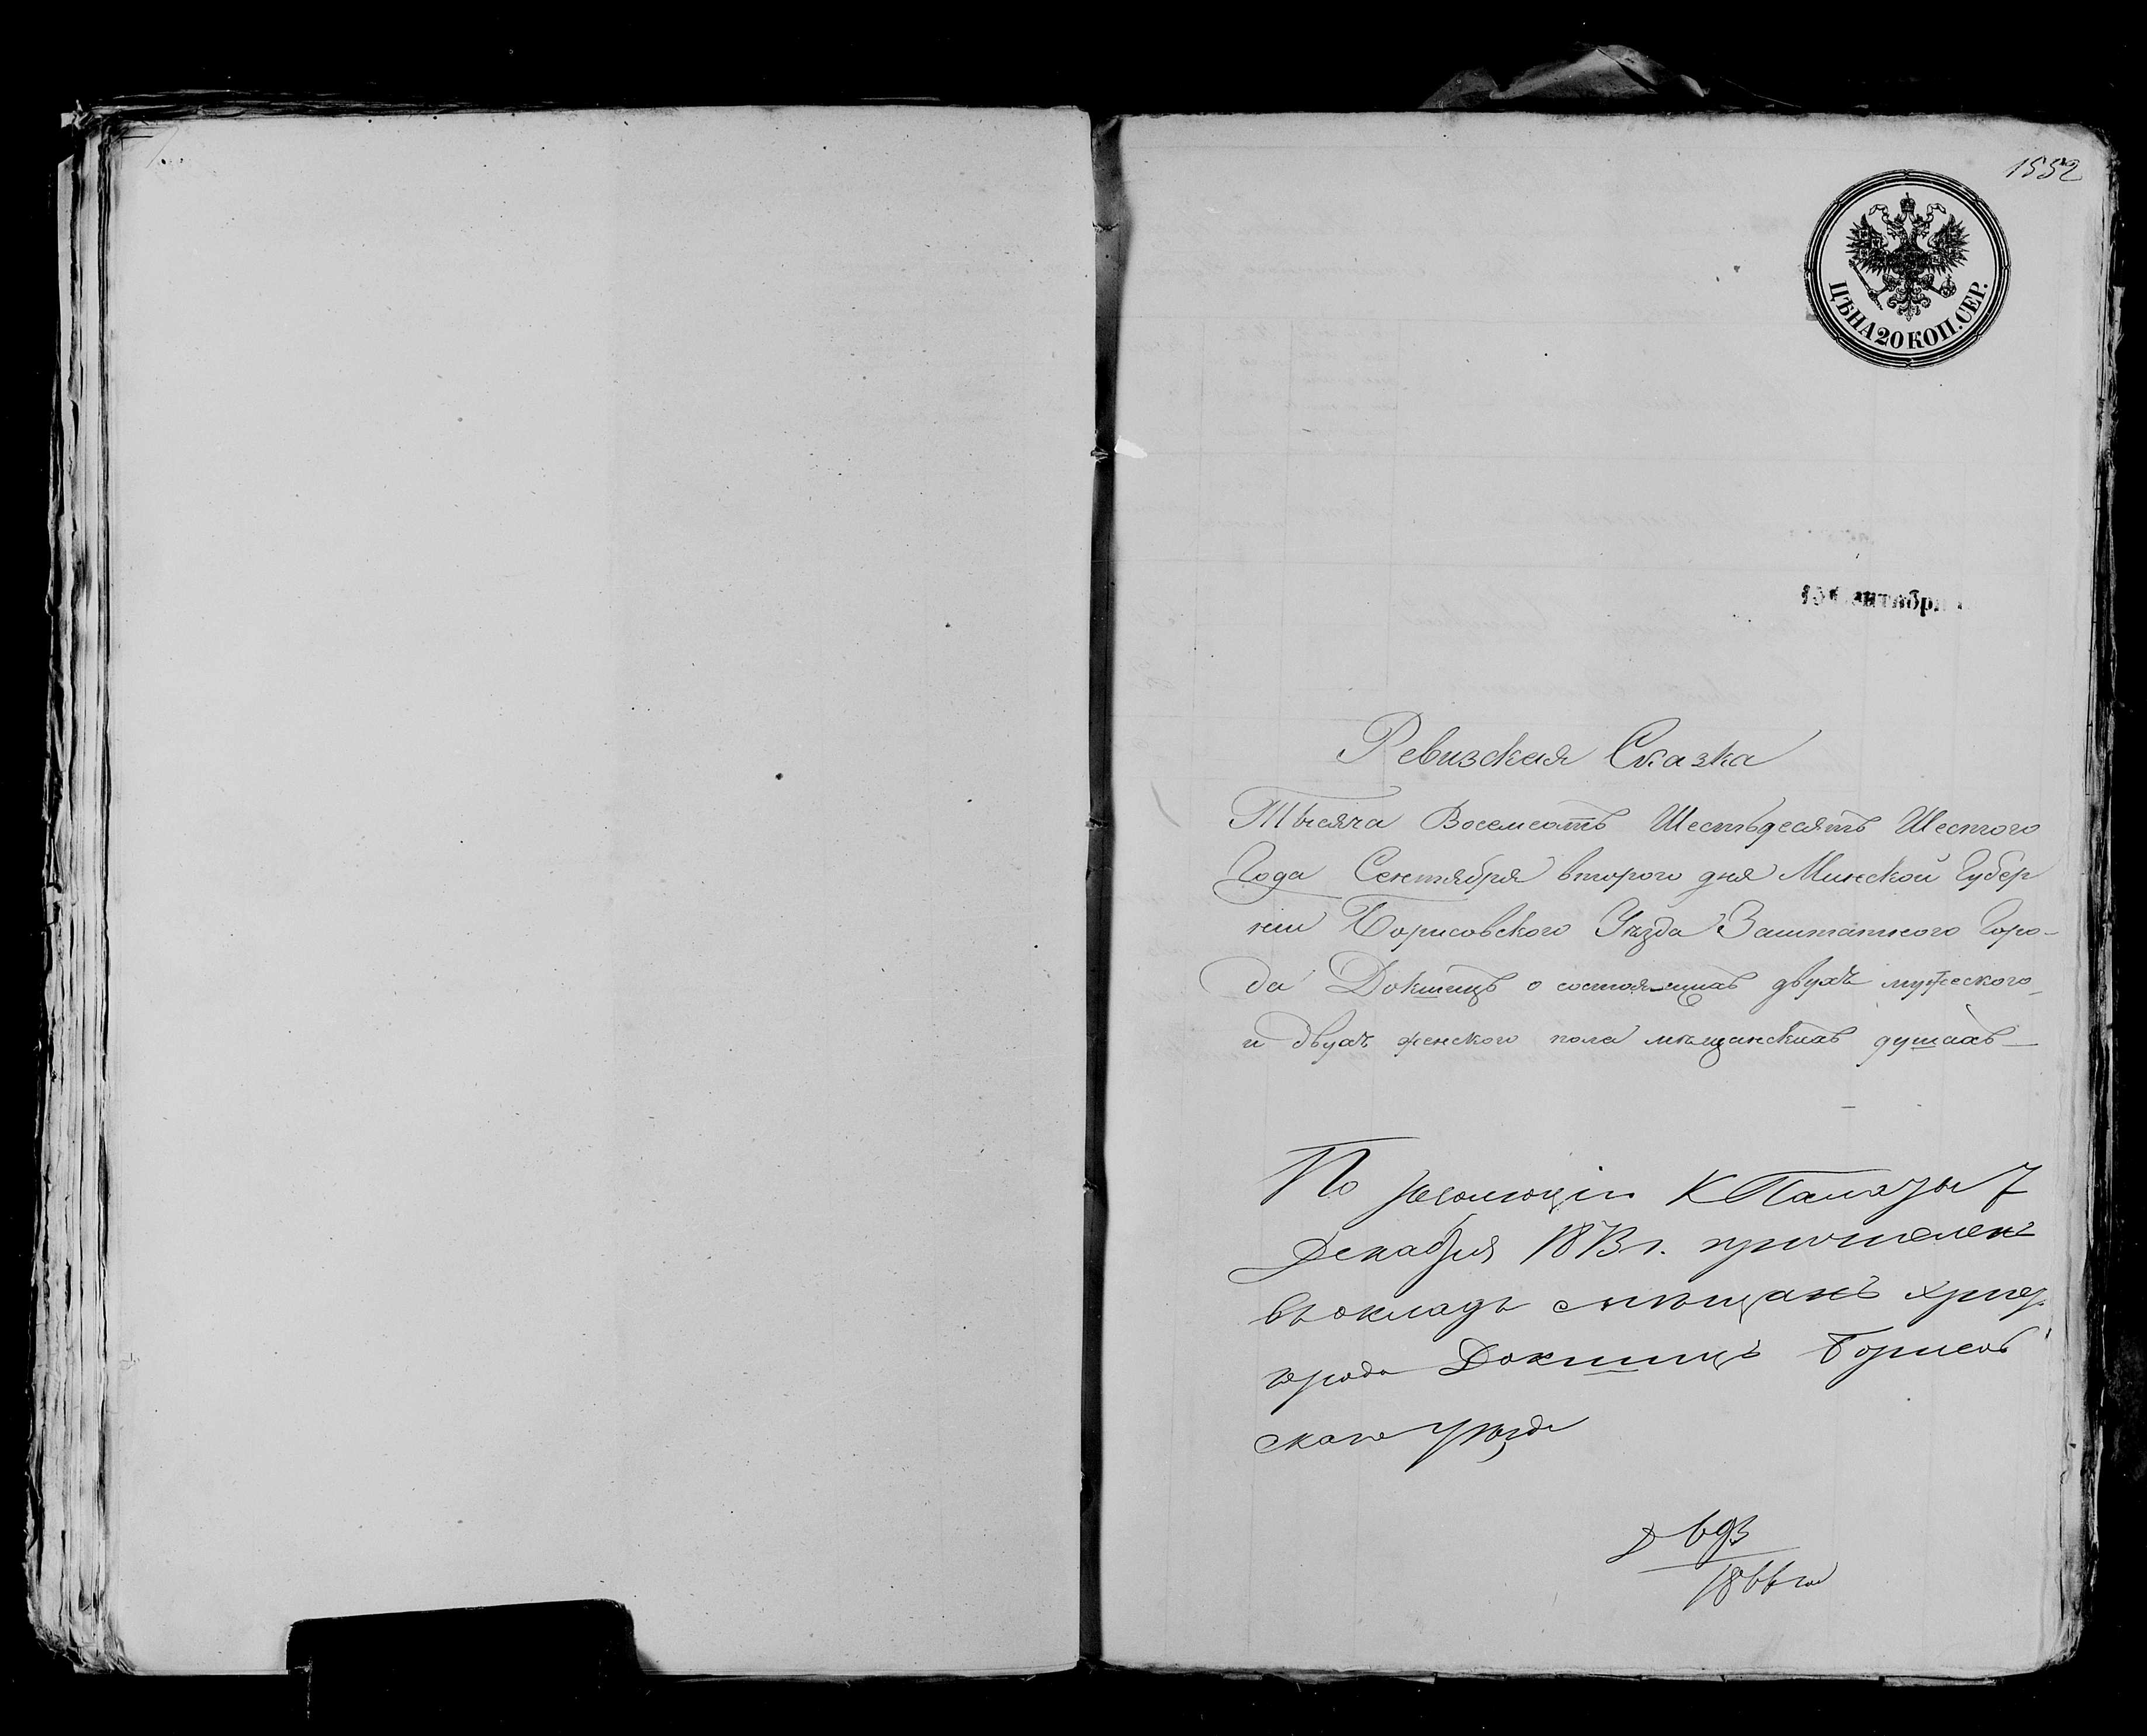 1552
ЦѢНА 20 КОП. СЕР.
Ревизская Сказка
Тысяча Восемсотъ Шестьдесятъ Шестого
Года Сентября второго дня Минской Губер
ніи Борисовского Уѣзда Заштатного Горо-
да Докшицъ о состоя-щихъ двухъ мужеского
и двухъ женского пола мѣщанскихъ душахъ
По резолюціи К Палаты 7
Декабря 1873 г. причислены
въ окладъ мѣщанъ
города Докшицъ Борисов
скаго уѣзда
1866